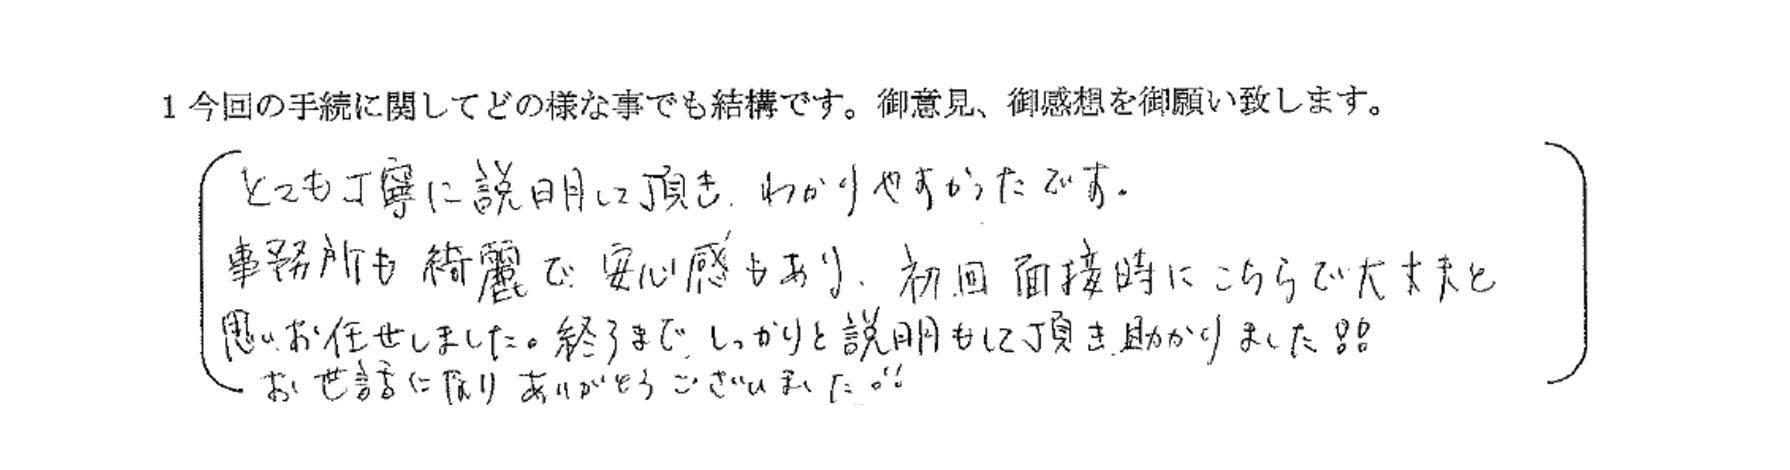 1 今回の手続に関してどの様な事でも結構です。御意見、御感想を御願い致します。
とても丁寧に説明して頂き、わかりやすかったです。
事務所も綺麗で、安心感もあり、初回面接時にこちらで大丈夫と
思い、お任せしました。終了まで、しっかりと説明もして頂き、助かりました!!
お世話になりありがとうございました!!